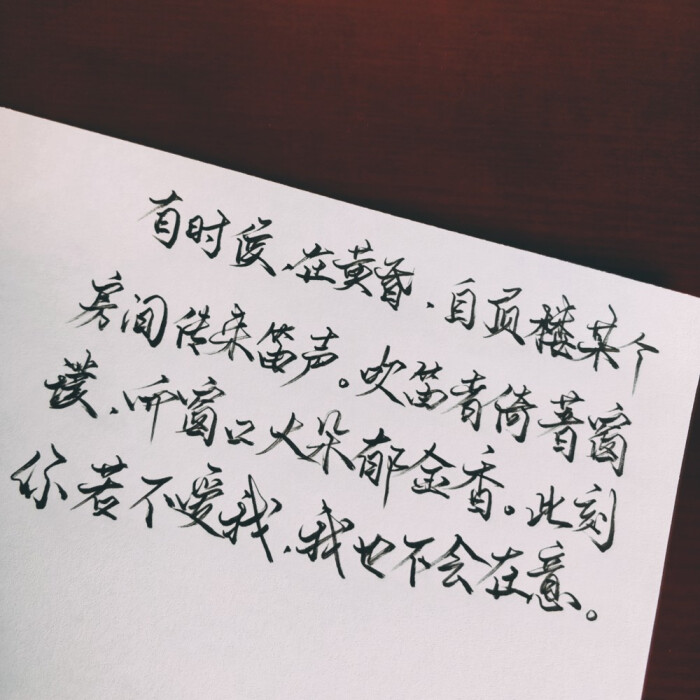 有时候，在黄昏，自顶楼某个
房间传来笛声。吹笛者倚著窗
牖，窗口大朵郁金香。此刻
你若不爱我，我也不会在意。